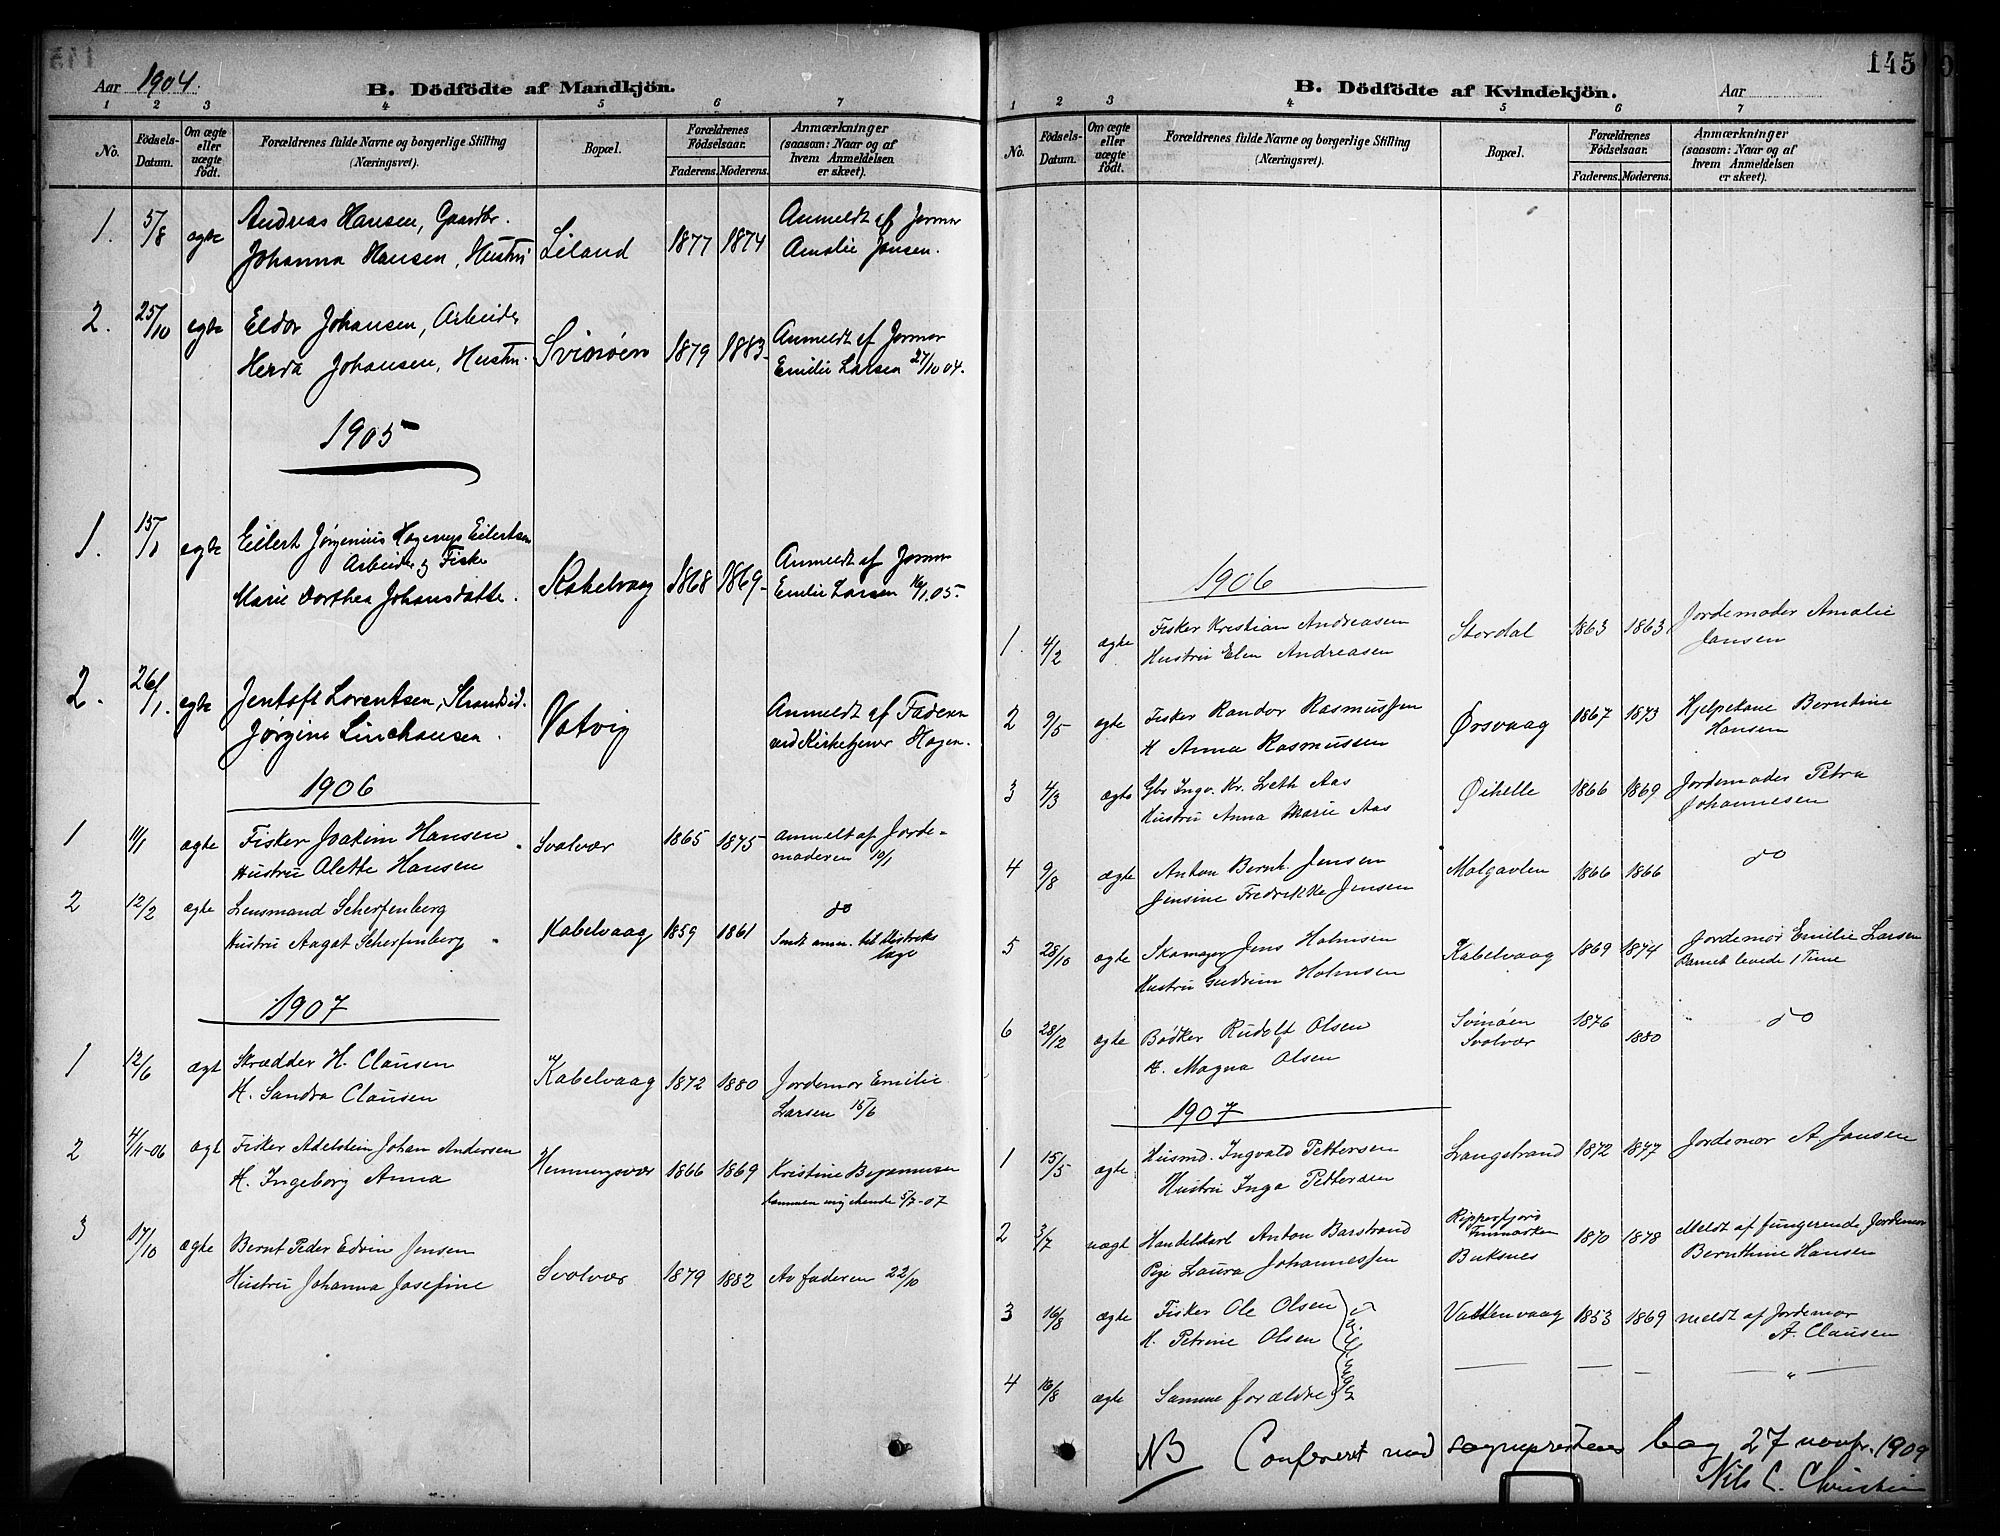 Aar 1904.
B. Dödfödte af Mandkjön.
1 2 3 4 5 6 7
No.
Födsels-Datum.
Om ægte eller uægte födt.
Forældrenes fulde Navne og borgerlige Stilling
(Næringsvei).
Bopæl.
Forældrenes Födselsaar.
Faderens. Moderens.
Anmærkninger
(saasom: Naar og af
hvem Anmeldelsen
er skeet).
1. 5/8 ægte Andreas Hansen, Gaardbr. Liland 1877 1874 Anmeldt af Jormor
Johanna Hansen, Hustru Amalie Jansen.
2. 25/10 egte Eldor Johansen, Arbeider Svinøen 1879 1883 Anmeldt af Jormor
Herda Johansen, Hustru. Emilie Larsen 27/10 04.
1905
1. 15/1 egte Eilert Jørgenius Eilertsen
Arbeider og Fisker Kabelvaag 1868 1869 Anmeldt af Jormor
Marie Dorthea Johansdatter. Emilie Larsen 16/1 05.
2. 26/1. egte Jentoft Lorentsen, Strandsid. Vatvig Anmeldt af Faderen
Jørgine ved Kirketjener Hagen.
1906
1 11/1 ægte Fisker Joakim Hansen Svolvær 1865 1875 anmelt af Jorde-
Hustru Alette Hansen moderen
2 12/2 ægte Lensmand Scherfenberg Kabelvaag 1859 1861 do
Hustru Aagot Scherfenberg Sendt anm. til Distrikts
læge
1907
1 12/6 ægt Skrædder H. Clausen Kabelvaag 1872 1880 Jordemor Emilie
H. Sandra Clausen Larsen 15/6
2 4/11-06 ægt Fisker Adelstein Johan Andersen Henningsvær 1866 1869 Kristine
H. Ingeborg Anna 5/7-07
3 17/10 ægte Bernt Peder Edvin Jensen Svolvær 1879 1882 Av faderen 22/10
Hustru Johanna Josefine
145
B. Dödfödte af Kvindekjön.
Aar
1 2 3 4 5 6 7
No.
Födsels-Datum.
Om ægte eller uægte födt.
Forældrenes fulde Navne og borgerlige Stilling
(Næringsvei).
Bopæl.
Forældrenes Födselsaar.
Faderens. Moderens.
Anmærkninger
(saasom: Naar og af
hvem Anmeldelsen
er skeet).
1906
1. 4/2 ægte Fisker Kristian Andreasen Stordal 1863 1863 Jordemoder Amalie
Hustru Elen Andreasen Jansen
2 9/5 egte Fisker Randor Rasmussen Ørsvaag 1867 1873 Hjelpekone Berntine
H Anna Rasmussen Hansen
3 4/3 ægte Gbr Ingv. Kr. Leth Aas Øihelle 1866 1869 Jordemoder Petra
Hustru Anna Marie Aas Johannesen
4 9/8 ægte Anton Bernh. Jensen Molgavlen 1866 1866 do
Jensine Fredrikke Jensen
5 28/10 ægte Skomager Jens Holmsen Kabelvaag 1869 1874 Jordemor Emilie Larsen
Hustru Gudrun Holmsen Barnet levede 1 Time
6 28/12 ægte Bødker Rudolf Olsen Svinøen 1876 do
H. Magna Olsen Svolvær 1880
1907
1 15/5 ægte Husmd. Ingvald Pettersen Langstrand 1872 1877 Jordemor A. Jansen
Hustru Inga Pettersen
2 3/7 uægt Handelskarl Anton Barstrand Finmarken 1870 1878 Meldt af fungerende Jordemor
Pige Laura Johannessen Buksnes Bernthine Hansen
3 16/8 ægte Fisker Ole Olsen Vattenvaag 1853 1869 meldt af Jordemor
H. Petrine Olsen A. Clausen
4 16/8 ægte Samme forældre — — — "
NB Confereret med sogneprestens bog 27 novbr. 1909
Nils C.